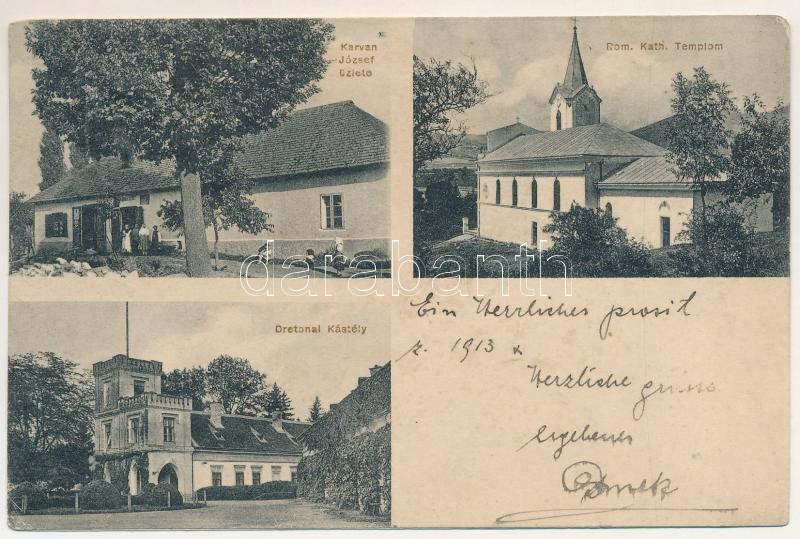 Karvan
József
üzlete
Rom. Kath. Templom
darabanth
Dretonai Kástély
Ein Herrliches prosit
z. 1913 &
Herzliche grüsse
Ergebener